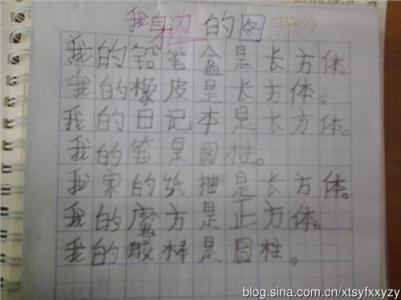 我身边的图形
我的铅笔盒是长方体。
我的橡皮是长方体。
我的日记本是长方体。
我的笔是圆柱。
我家的纸抽是长方体。
我的魔方是正方体。
我的胶棒是圆柱。
blog.sina.com.cn/xtsyfxxyzy